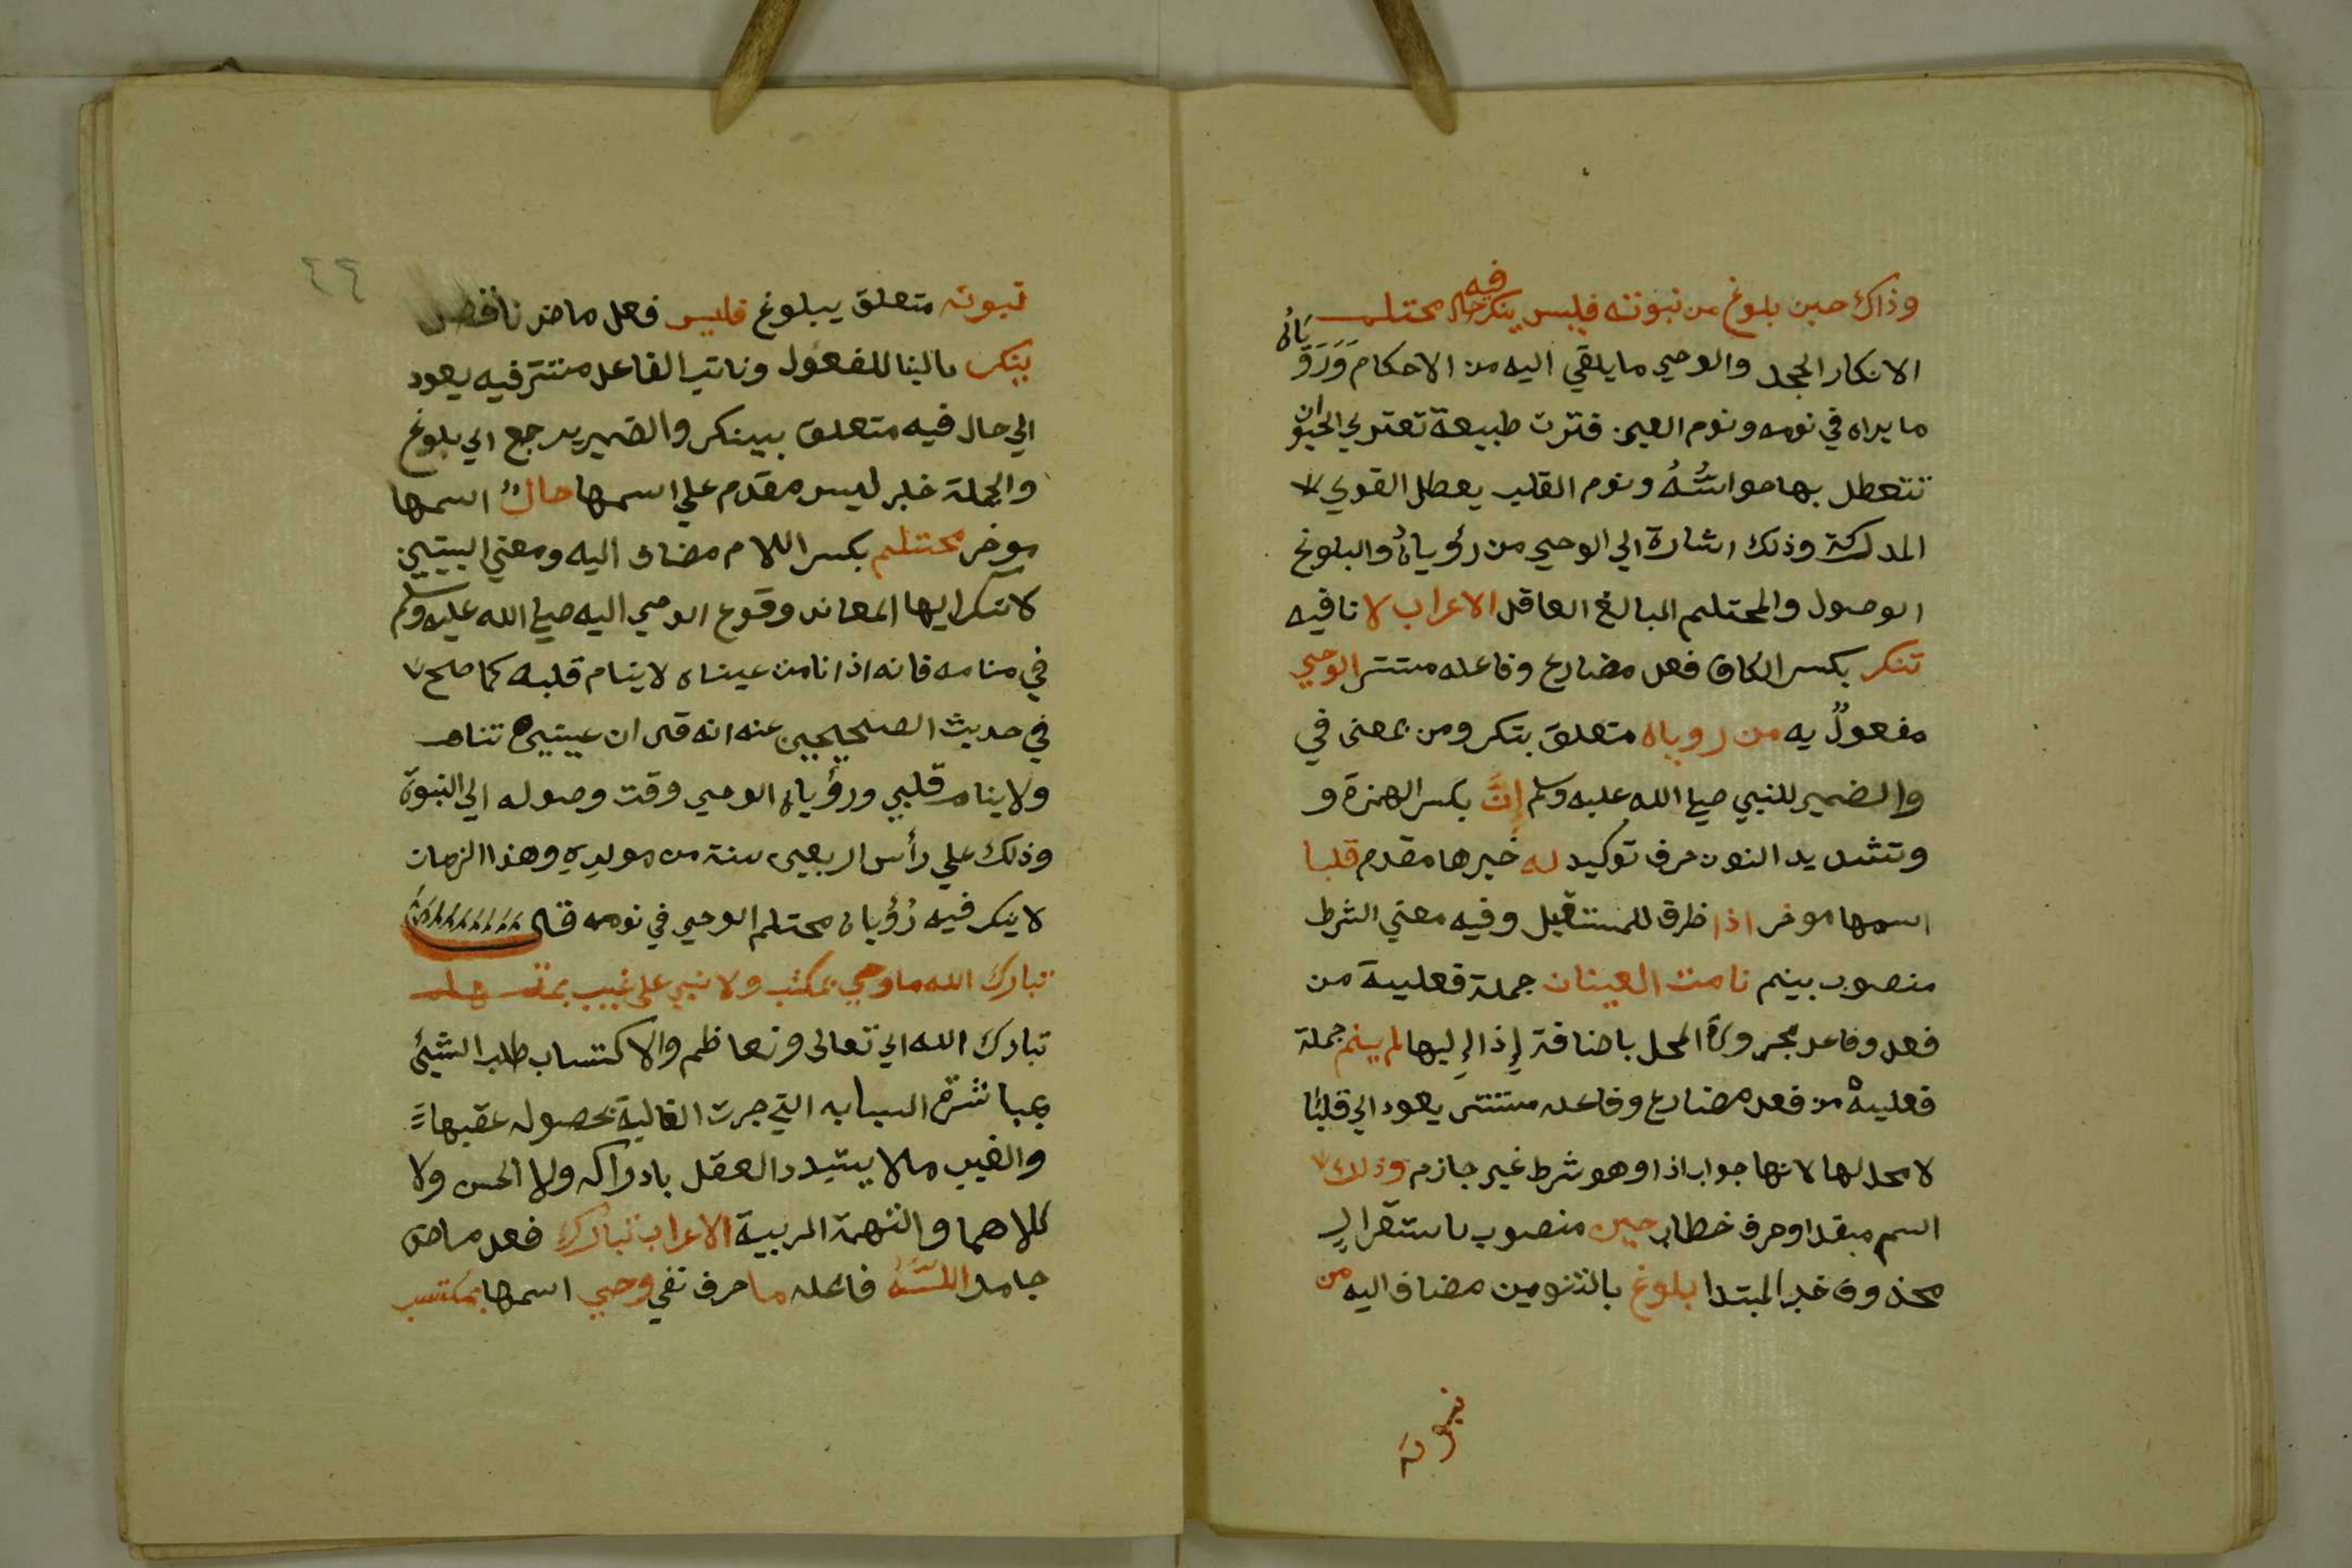 وذاك حين بلوغ من نبوته فليس ينكر فيه حال محتلم
الانكار الجحد والوحي ما يلقي اليه من الاحكام وَرَؤياه
ما يراه في نومه ونوم العين فترت طبيعة تعتري الحيوان
تتعطل بها حواسُّهُ ونوم القلب يعطل القوي
المدركة وذلك اشارة الي الوحي من رؤياهُ والبلوغ
الوصول والمحتلم المبالغ العاقل الاعراب لا نافيه
تنكر بكسر الكاف فعل مضارع وفاعله مستتر الوحي
مفعولٌ به من روياه متعلق بتكر ومن بمعنى في
والضمير للنبي صلي الله عليه وسلم إنَّ بكسر الهمزة و
وتشديد النون حرف توكيد له خبرها مقدم قلبا
اسمها موخر اذا ظرف للمستقبل وفيه معني الشرط
منصوب بينم نامت العينان جملة فعلية من
فعل وفاعل مجرورة المحل باضافة إذا إليها لم ينم جملة
فعلية من فعل مضارع وفاعله مستتر يعود الي قلبًا
لا محل لها لانها جواب اذا وهو شرط غير جازم وذلك
اسم مبتدا وحرف خطاب حين منصوب باستقرار
محذوف خبر المبتدا بلوغ بالتنوين مضاف اليه من
نبوته
٤٤
نبوته متعلق ببلوغ فليس فعل ماض ناقص
ينكر بالبنا للمفعول ونائب الفاعل مستتر فيه يعود
الي حال فيه متعلق بينكر والضمير يرجع الي بلوغ
والجملة خبر ليس مقدم علي اسمها حالُ اسمها
موخر محتلم بكسر اللام مضاف اليه ومعني البيتين
لا تنكر ايها المعاند وقوع الوحي اليه صلي الله عليه وسلم
في منامه فانه اذا نامت عيناه لا ينام قلبه كما صح
في حديث الصحيحين عنه انه قال ان عينيي تنام
ولا ينام قلبي ورؤياه الوحي وقت وصوله الي النبوة
وذلك علي رأس اربعين سنة من مولده وهذا الزمان
لا ينكر فيه رُؤيا محتلم الوحي في نومه قال
تبارك الله ما وحي بمكتسب ولا نبي على غيب بمتهم
تبارك الله اي تعالى وتعاظم والاكتساب طلب الشيئ
بمباشرة اسبابه التي جرت الغالية بحصوله عقبها
والغيب ما لا يستبدد العقل بادراكه ولا الحس ولا
كلاهما والتهمة الريبية الاعراب تبارك فعل ماض
جامد اللَّهُ فاعله ما حرف نفي وحي اسمها بمكتسب